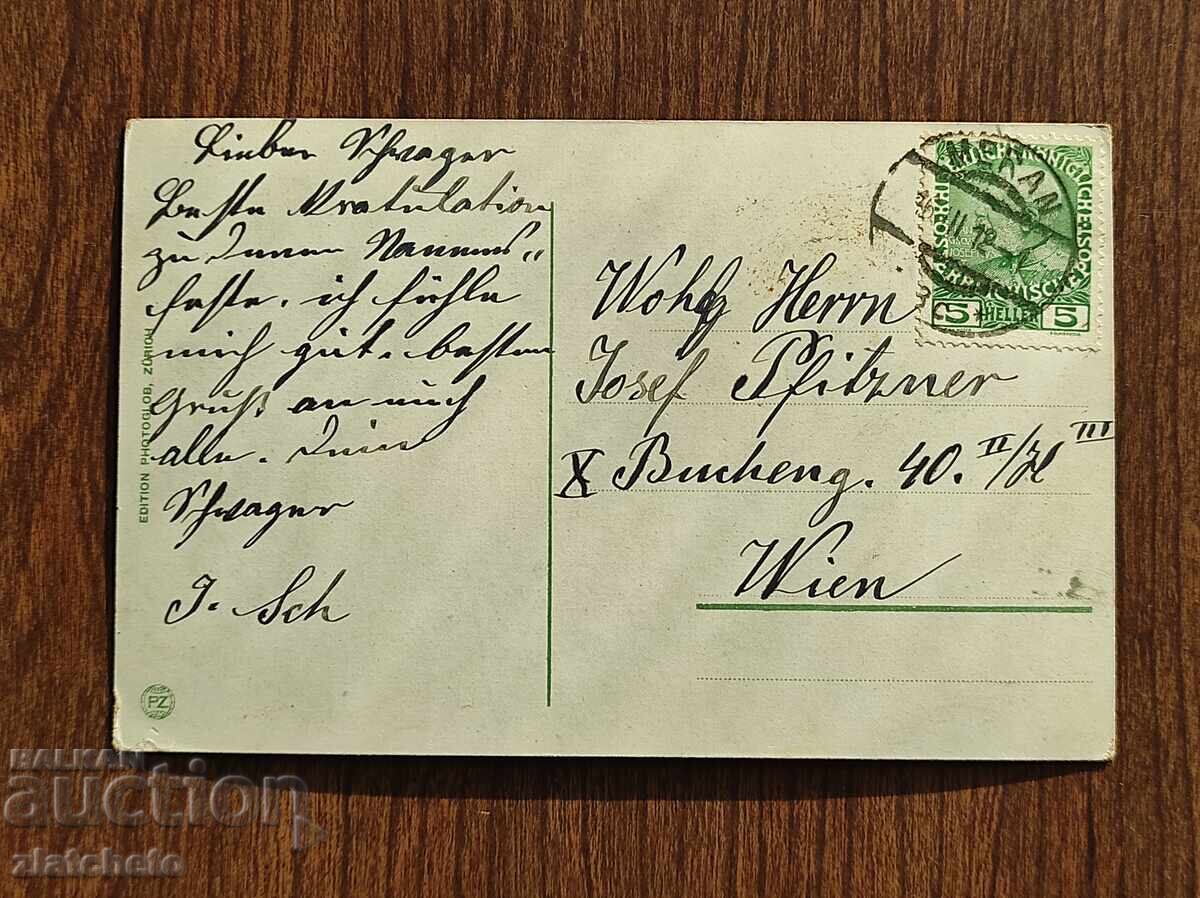 Lieber Schwager
Beste Kratulation
zu deinem Nammens„
feste. ich fühle
mich gut. besten
Gruß an euch
alle. Dein
Schwager
J. Sch
EDITION PHOTOGLOB, ZÜRICH
PZ
MERAN
II 12
5 HELLER 5
Wohlg Herrn
Josef Pfitzner
X Bucheng. 40. II/
III
Wien
BALKAN
auction
zlatcheto